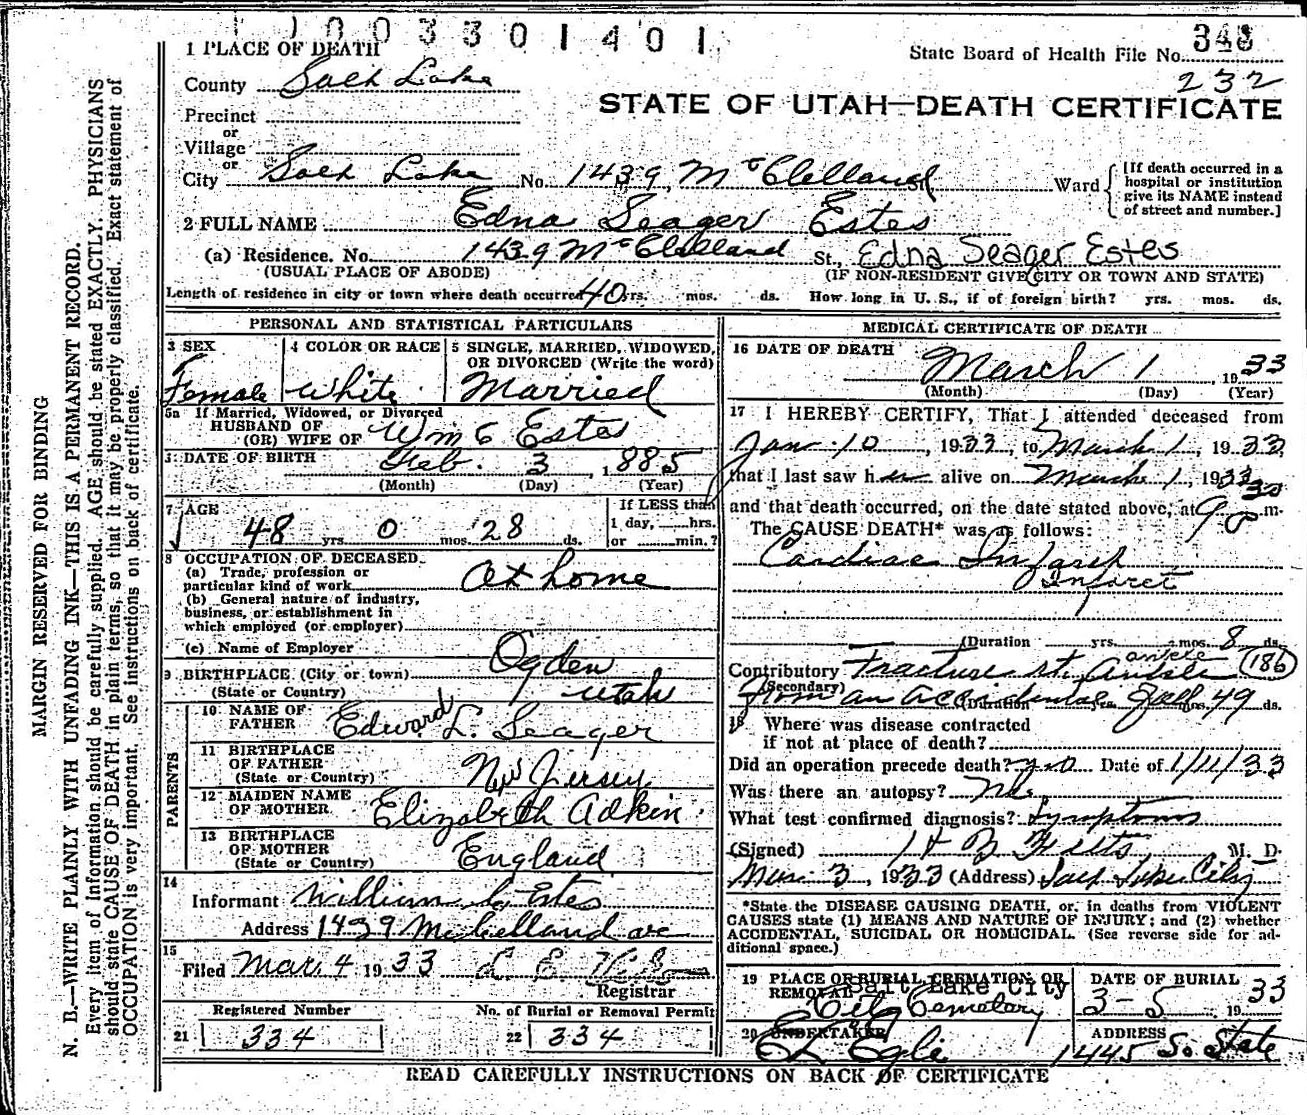 1003301401
1 PLACE OF DEATH
State Board of Health File No. 348
232
County Salt Lake
STATE OF UTAH—DEATH CERTIFICATE
Precinct
or
Village
or
City Salt Lake No. 1439 McClelland St. Ward
[If death occurred in a
hospital or institution
give its NAME instead
of street and number.]
2 FULL NAME Edna Seager Estes
(a) Residence. No. 1439 McClelland St., Edna Seager Estes
(USUAL PLACE OF ABODE) (IF NON-RESIDENT GIVE CITY OR TOWN AND STATE)
Length of residence in city or town where death occurred 40 yrs. mos. ds. How long in U. S., if of foreign birth? yrs. mos. ds.
PERSONAL AND STATISTICAL PARTICULARS
3 SEX 4 COLOR OR RACE 5 SINGLE, MARRIED, WIDOWED,
OR DIVORCED (Write the word)
Female White Married
5a If Married, Widowed, or Divorced
HUSBAND OF
(OR) WIFE OF Wm E Estes
6 DATE OF BIRTH Feb. 3, 1885
(Month) (Day) (Year)
7 AGE If LESS than
1 day, hrs.
48 yrs 0 mos. 28 ds. or min.?
8 OCCUPATION OF DECEASED
(a) Trade, profession or
particular kind of work At home
(b) General nature of industry,
business, or establishment in
which employed (or employer)
(c) Name of Employer
9 BIRTHPLACE (City or town) Ogden
(State or Country) Utah
PARENTS
10 NAME OF
FATHER Edward L. Seager
11 BIRTHPLACE
OF FATHER
(State or Country) New Jersey
12 MAIDEN NAME
OF MOTHER Elizabeth Adkin
13 BIRTHPLACE
OF MOTHER
(State or Country) England
14
Informant William E Estes
Address 1439 McClelland ave
15
Filed Mar. 4 1933
Registrar
Registered Number No. of Burial or Removal Permit
21 334 22 334
MEDICAL CERTIFICATE OF DEATH
16 DATE OF DEATH March 1, 1933
(Month) (Day) (Year)
17 I HEREBY CERTIFY, That I attended deceased from
Jan. 10, 1933, to March 1, 1933
that I last saw her alive on March 1, 1933
and that death occurred, on the date stated above, at 9 m.
The CAUSE DEATH* was as follows:
Cardiac Infarct
Infarct
(Duration yrs. mos. 8 ds.
Contributory Fracture rt. ankle ankle 186
(Secondary) from an accidental fall
(Duration yrs. mos. 49 ds.
18 Where was disease contracted
if not at place of death?
Did an operation precede death? Date of 1/11/33
Was there an autopsy? No.
What test confirmed diagnosis? Symptoms
(Signed) M. D.
Mar. 3, 1933 (Address) Salt Lake City
*State the DISEASE CAUSING DEATH, or, in deaths from VIOLENT
CAUSES state (1) MEANS AND NATURE OF INJURY; and (2) whether
ACCIDENTAL, SUICIDAL OR HOMICIDAL. (See reverse side for ad-
ditional space.)
19 PLACE OF BURIAL, CREMATION, OR
REMOVAL Salt Lake City
City Cemetary
DATE OF BURIAL
3-5 1933
20 UNDERTAKER ADDRESS
Egli 1445 So State
READ CAREFULLY INSTRUCTIONS ON BACK OF CERTIFICATE
MARGIN RESERVED FOR BINDING
N. B.—WRITE PLAINLY WITH UNFADING INK—THIS IS A PERMANENT RECORD.
Every item of information should be carefully supplied. AGE should be stated EXACTLY. PHYSICIANS
should state CAUSE OF DEATH in plain terms, so that it may be properly classified. Exact statement of
OCCUPATION is very important. See instructions on back of certificate.